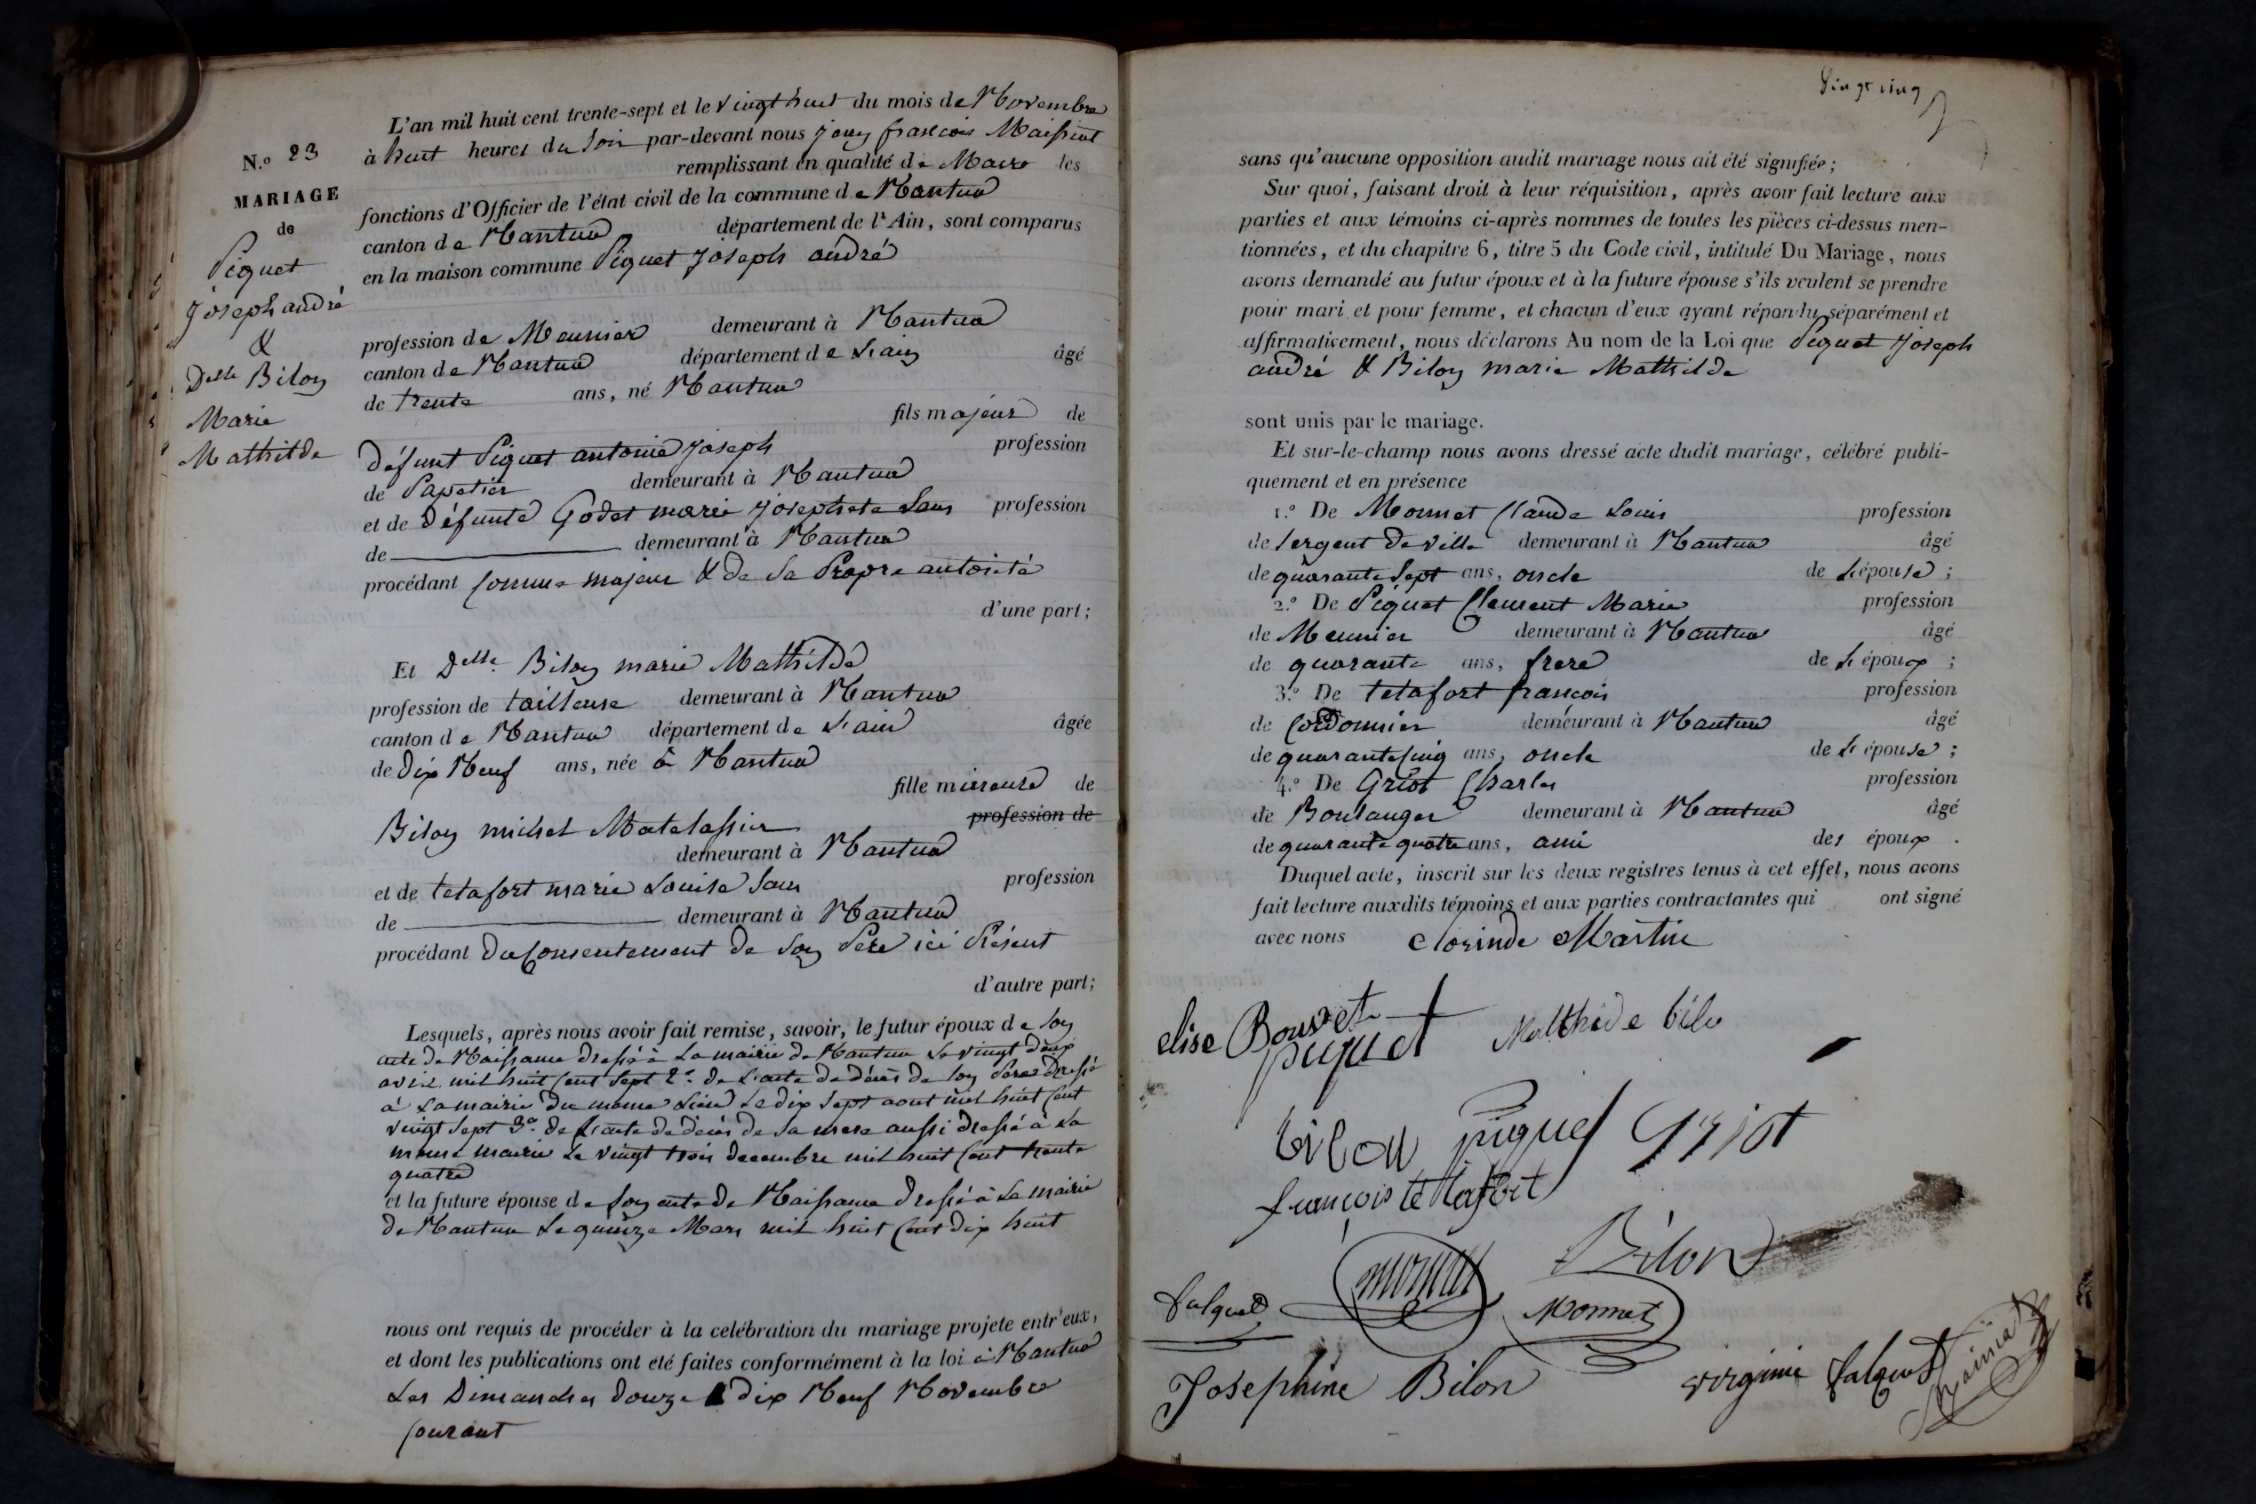 N.o 23
MARIAGE
de
Piquet
Joseph andré
&
Delle Bilon
Marie
Mathilde
L'an mil huit cent trente-sept et le vingt huit du mois de Novembre
à huit heures du Soir par-devant nous Jouy francois
remplissant en qualité de Maire les
fonctions d'Officier de l'état civil de la commune de Nantua
canton de Nantua département de l'Ain, sont comparus
en la maison commune Piquet Joseph andré
profession de Meunier demeurant à Nantua
canton de Nantua département de L'ain âgé
de trente ans, né Nantua
fils majeur de
défunt Piquet antoine Joseph profession
de Papetier demeurant à Nantua
et de défunte Godet marie Josephete Sans profession
de demeurant à Nantua
procédant Comme majeur & de Sa Propre autorité
d'une part;
Et Delle Bilon marie Mathilde
profession de tailleuse demeurant à Nantua
canton de Nantua département de L'ain âgée
de Dix Neuf ans, née à Nantua
fille mineure de
Bilon michel Matelassier profession de
demeurant à Nantua
et de tetafort marie Louise Sans profession
de demeurant à Nantua
procédant du Consentement de Son Pere ici Présent
d'autre part;
Lesquels, après nous avoir fait remise, savoir, le futur époux de Son
acte de Naissance dressé à La mairie de Nantua Le vingt deux
avril mil huit Cent Sept 2o. de L'acte de décès de Son Pere dressé
à La mairie du meme Lieu Le dix Sept aout mil huit Cent
vingt Sept 3o. de L'acte de décès de Sa mere aussi dressé à La
meme mairie Le vingt trois decembre mil huit Cent trente
quatre
et la future épouse de Son acte de Naissance dressé à La mairie
de Nantua Le quinze Mars mil huit Cent dix huit
nous ont requis de procéder à la celébration du mariage projete entr'eux,
et dont les publications ont eté faites conformément à la loi à Nantua
Les Dimanches douze & dix Neuf Novembre
Courant
Vingt cinq
sans qu'aucune opposition audit mariage nous ait été signifiée;
Sur quoi, faisant droit à leur réquisition, après avoir fait lecture aux
parties et aux témoins ci-après nommes de toutes les pièces ci-dessus men-
tionnées, et du chapitre 6, titre 5 du Code civil, intitulé Du Mariage, nous
avons demandé au futur époux et à la future épouse s'ils veulent se prendre
pour mari et pour femme, et chacun d'eux ayant répondu séparément et
affirmativement, nous déclarons Au nom de la Loi que Piquet Joseph
andré & Bilon marie Mathilde
sont unis par le mariage.
Et sur-le-champ nous avons dressé acte dudit mariage, célébré publi-
quement et en présence
1.o De Monnet Claude Louis profession
de Sergent de ville demeurant à Nantua âgé
de quarante Sept ans, oncle de L'épouse;
2.o De Piquet Clement Marie profession
de Meunier demeurant à Nantua âgé
de quarante ans, frere de L'époux;
3.o De tetafort francois profession
de Cordonnier demeurant à Nantua âgé
de quarante Cinq ans, oncle de L'épouse;
4.o De Griot Charles profession
de Boulanger demeurant à Nantua âgé
de quarante quatre ans, ami des époux.
Duquel acte, inscrit sur les deux registres tenus à cet effet, nous avons
fait lecture auxdits témoins et aux parties contractantes qui ont signé
avec nous clorinde Martin
elise Bouvet
piquet Mathide bilo
bilon piquet griot
françois tétafort
Bilon
falquet Monnet
Josephine Bilon virginie falquet